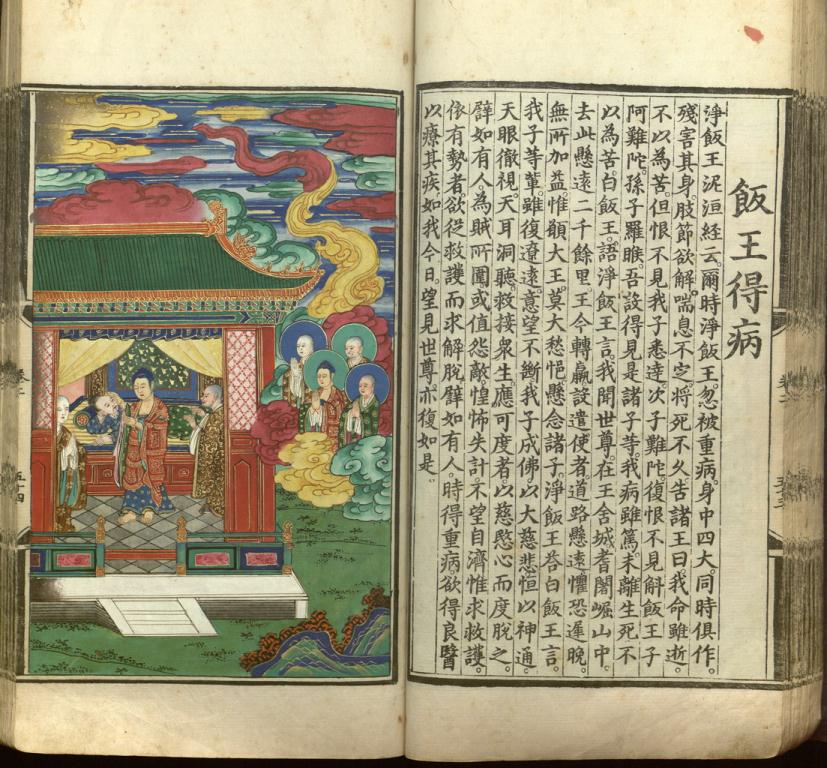 飯王得病
淨飯王泥洹經云。爾時淨飯王。忽被重病。身中四大。同時俱作。
殘害其身。肢節欲解。喘息不定。將死不久。告諸王曰。我命雖逝。
不以為苦。但恨不見我子悉達。次子難陀。復恨不見斛飯王子
阿難陀。孫子羅睺。吾設得見是諸子等。我病雖篤。未離生死。不
以為苦。白飯王。語淨飯王言。我聞世尊。在王舍城耆闍崛山中。
去此懸遠二千餘里。王今轉羸。設遣使者。道路懸遠。懼恐遲晚。
無所加益。惟願大王。莫大愁悒。懸念諸子。淨飯王答白飯王言。
我子等輩。雖復遼遠。意望不斷。我子成佛。以大慈悲。恒以神通。
天眼徹視。天耳洞聽。救接衆生。應可度者。以慈愍心而度脫之。
譬如有人。為賊所圍。或值怨敵。惶怖失計。不望自濟。惟求救護。
依有勢者。欲從救護而求解脫。譬如有人。時得重病。欲得良醫
以療其疾。如我今日。望見世尊。亦復如是。
五十四